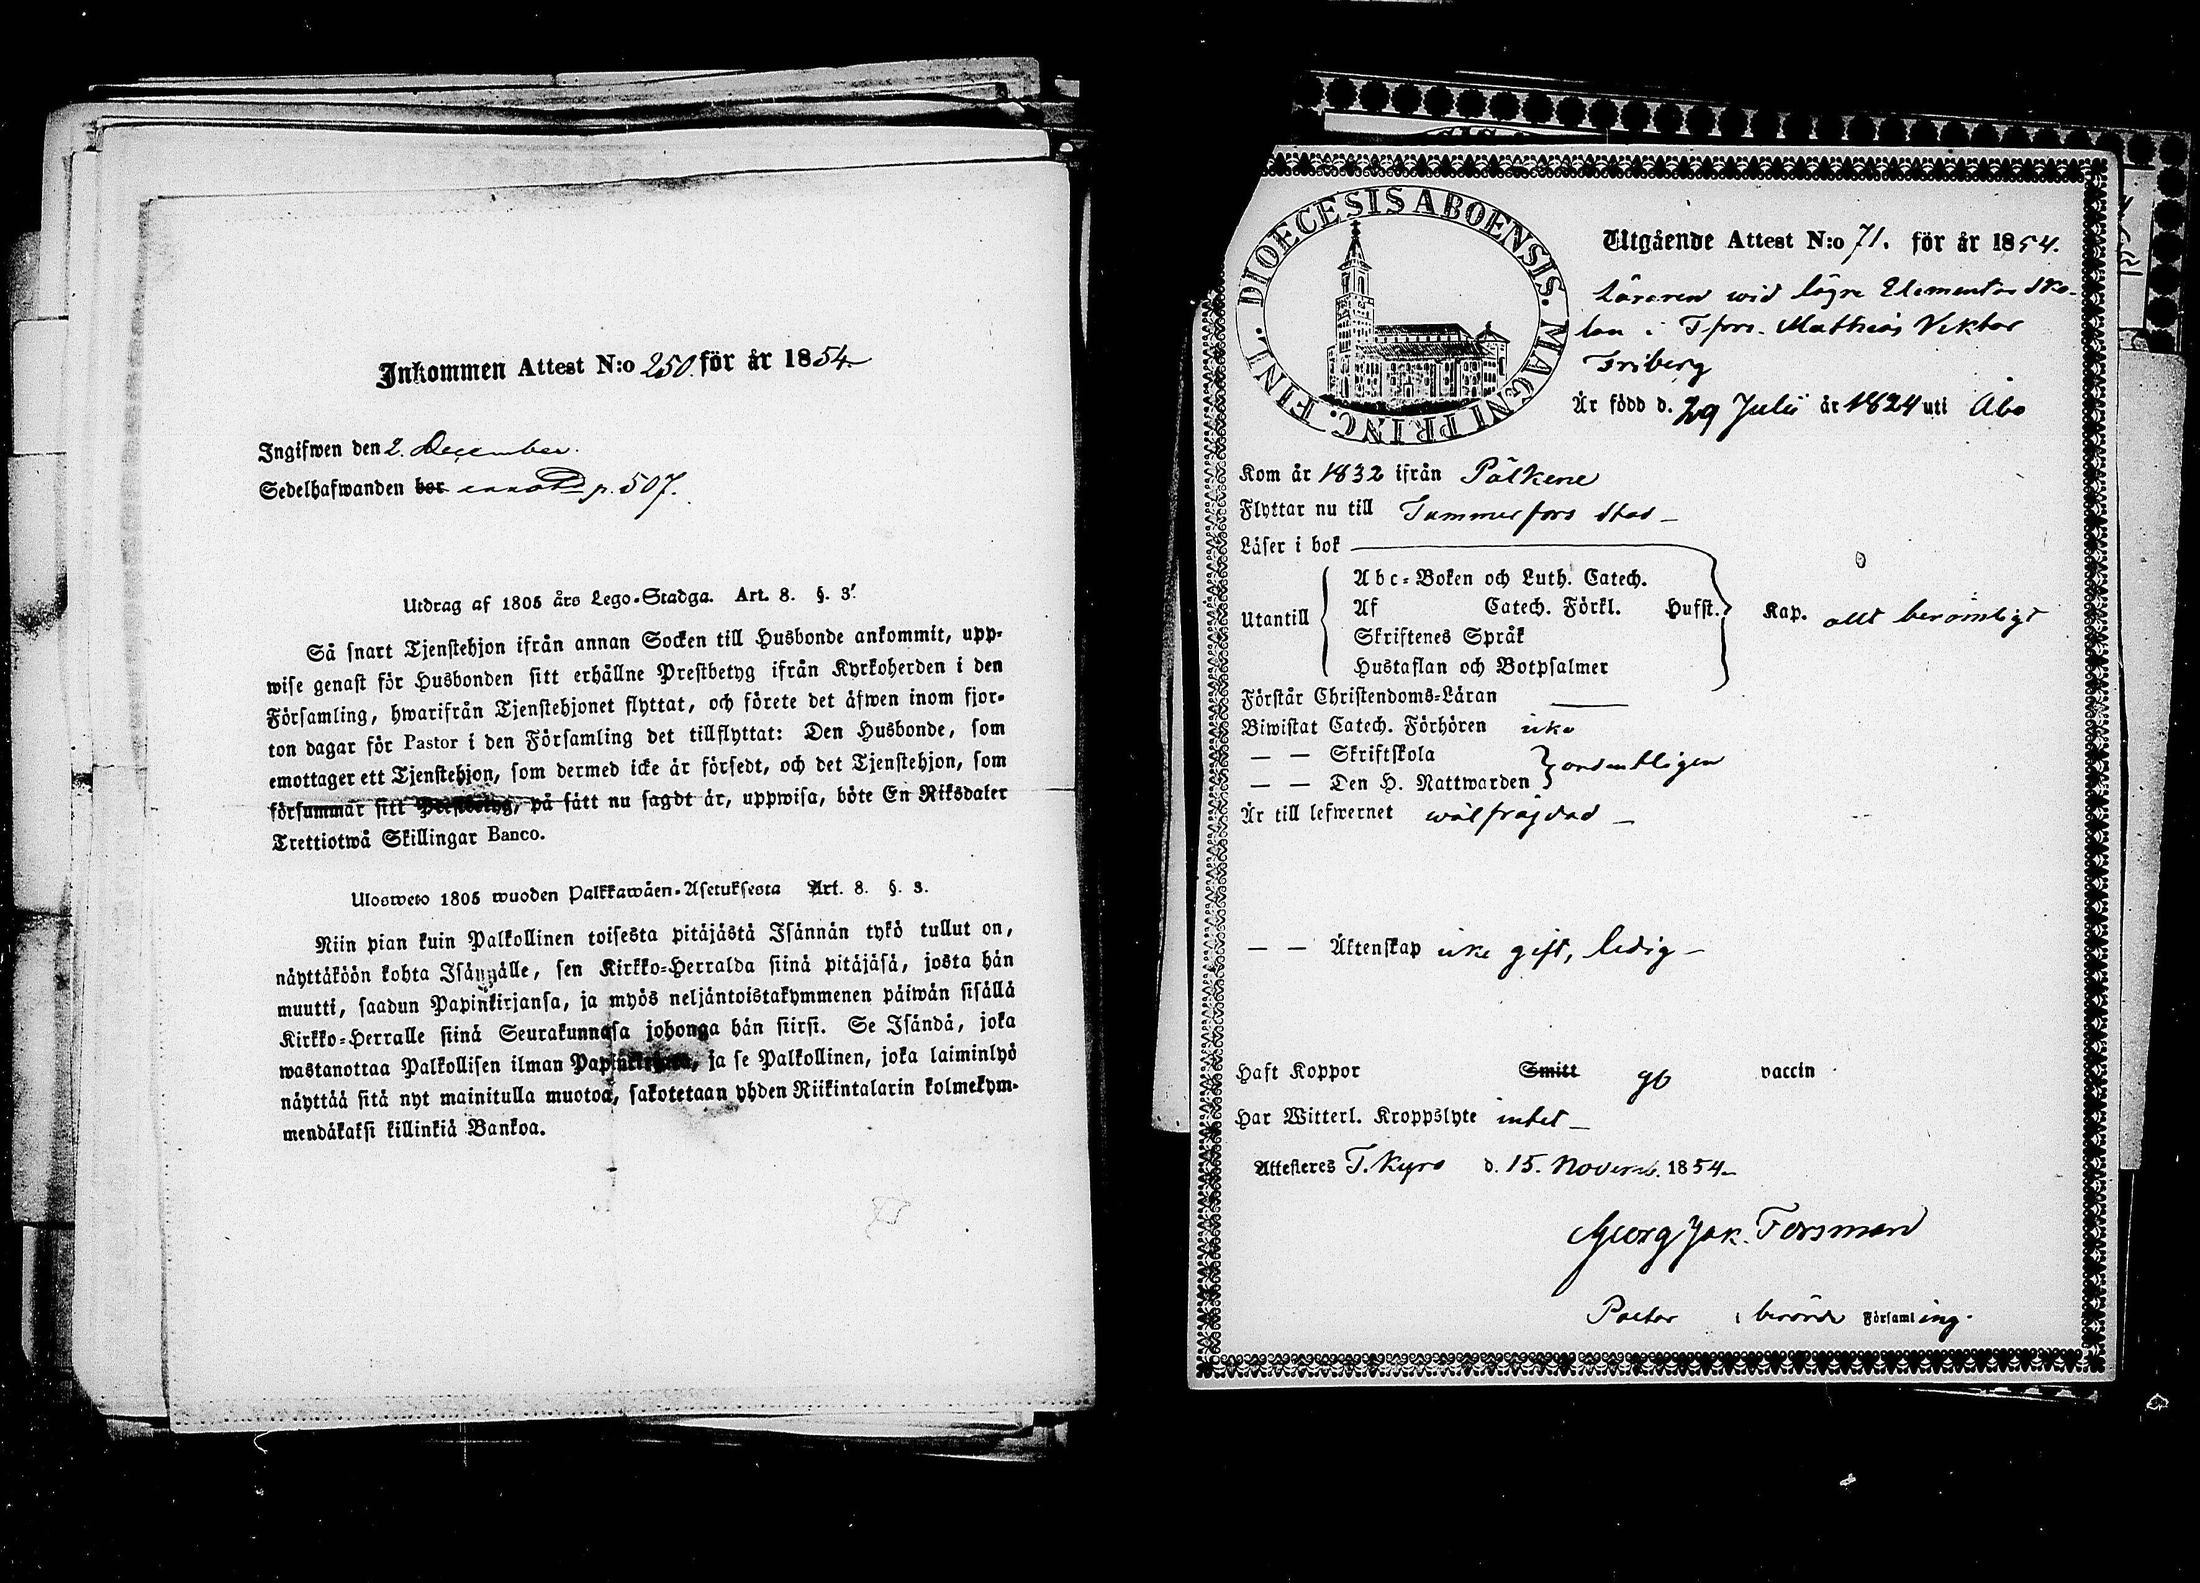 Inkommen Attest N:o 250. för år 1854.
Ingifwen den 2. December.
Sedelhafwanden bor annot. p. 507.
Utdrag af 1805 års Lego-Stadga. Art. 8. §. 3.
Så snart Tjenstehjon ifrån annan Socken till Husbonde ankommit, upp-
wise genast för Husbonden sitt erhållne Prestbetyg ifrån Kyrkoherden i den
Församling, hwarifrån Tjenstehjonet flyttat, och förete det äfwen inom fjor-
ton dagar för Pastor i den Församling det tillflyttat: Den Husbonde, som
emottager ett Tjenstehjon, som dermed icke är försedt, och det Tjenstehjon, som
försummar sitt Prestbetyg, på sätt nu sagdt är, uppwisa, böte En Riksdaler
Trettiotwå Skillingar Banco.
Ulosweto 1805 wuoden Palkkawäen-Asetuksesta Art. 8. §. 3.
Niin pian kuin Palkollinen toisesta pitäjästä Isännän tykö tullut on,
näyttäköön kohta Isännälle, sen Kirkko-Herralda siinä pitäjäsä, josta hän
muutti, saadun Papinkirjansa, ja myös neljäntoistakymmenen päiwän sisällä
Kirkko-Herralle siinä Seurakunnasa johonga hän siirsi. Se Isändä, joka
wastanottaa Palkollisen ilman Papinkirjata, ja se Palkollinen, joka laiminlyö
näyttää sitä nyt mainitulla muotoa, sakotetaan yhden Riikintalarin kolmekym-
mendäkaksi killinkiä Bankoa.
DIOECESIS ABOENSIS. MAGNI PRINC. FINL.
Utgående Attest N:o 71. för år 1854.
Läraren wid lägre Elementar Sko-
lan i T fors. Mathias Viktor
Friberg
Är född d. 29 Julii år 1824 uti Åbo
Kom år 1832 ifrån Pälkene
Flyttar nu till Tammerfors Stad
Läser i bok
Abc-Boken och Luth. Catech.
Utantill Af Catech. Förkl. Hufst. Kap. allt berömligt
Skriftenes Språk
Hustaflan och Botpsalmer
Förstår Christendoms-Läran
Biwistat Catech. Förhören icke
— — Skriftskola
— — Den H. Nattwarden ordentligen
Är till lefwernet wälfrägdad
— — Äktenskap icke gift, ledig
Haft Koppor Smitt gb vaccin
Har Witterl. Kroppslyte intet
Attesteres T. Kyro d. 15. Novemb. 1854
Georg Jak. Forsman
Pastor i berörde Församling.